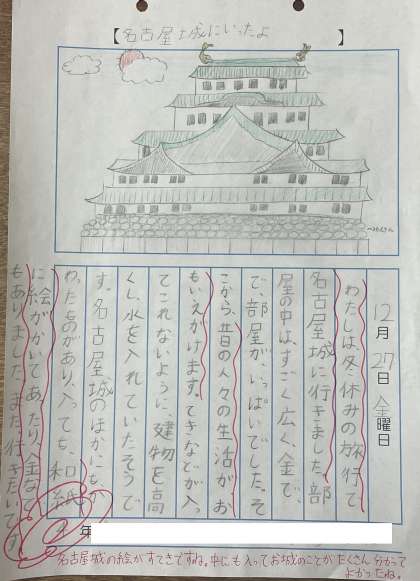 【名古屋城にいったよ】
12月27日金曜日
わたしは冬休みの旅行で
名古屋城に行きました。部
屋の中は、すごく広く、金で、
で、部屋が、いっぱいでした。そ
こから、昔の人々の生活が、お
もいえがけます。てきなどが入っ
てこれないように、建物を高
くし、水を入れていたそうで
す。名古屋城のほかにも、
わったものがあり、入っても、和紙
に絵がかいてあったり、金など
もありました。また行きたいです。
年
名古屋城の絵がすてきですね。中にも入ってお城のことがたくさん分かって
よかったね。